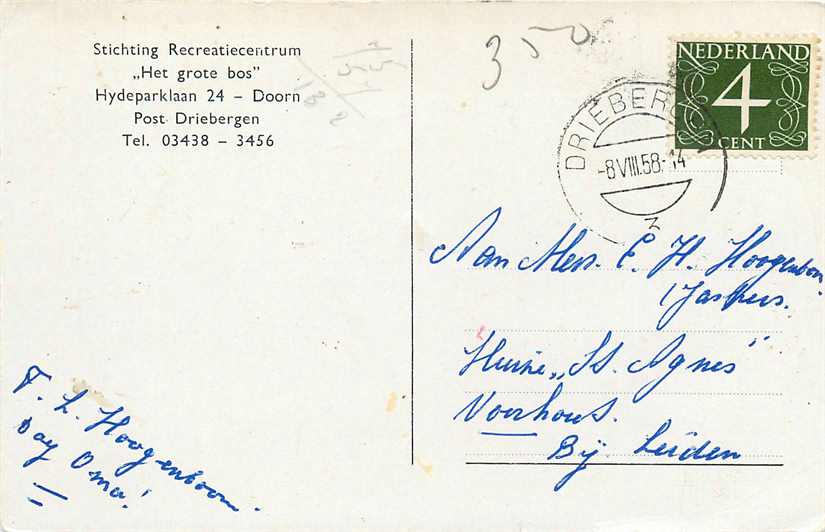 Stichting Recreatiecentrum
„Het grote bos"
Hydeparklaan 24 – Doorn
Post Driebergen
Tel. 03438 – 3456
350
NEDERLAND
4
CENT
DRIEBERGEN
-8 VIII.58.-14
Aan Mevr. E. H. Hoogenboom
Huize „St. Agnes"
Voorhout.
Bij Leiden
T. L. Hoogenboom.
Dag Oma!